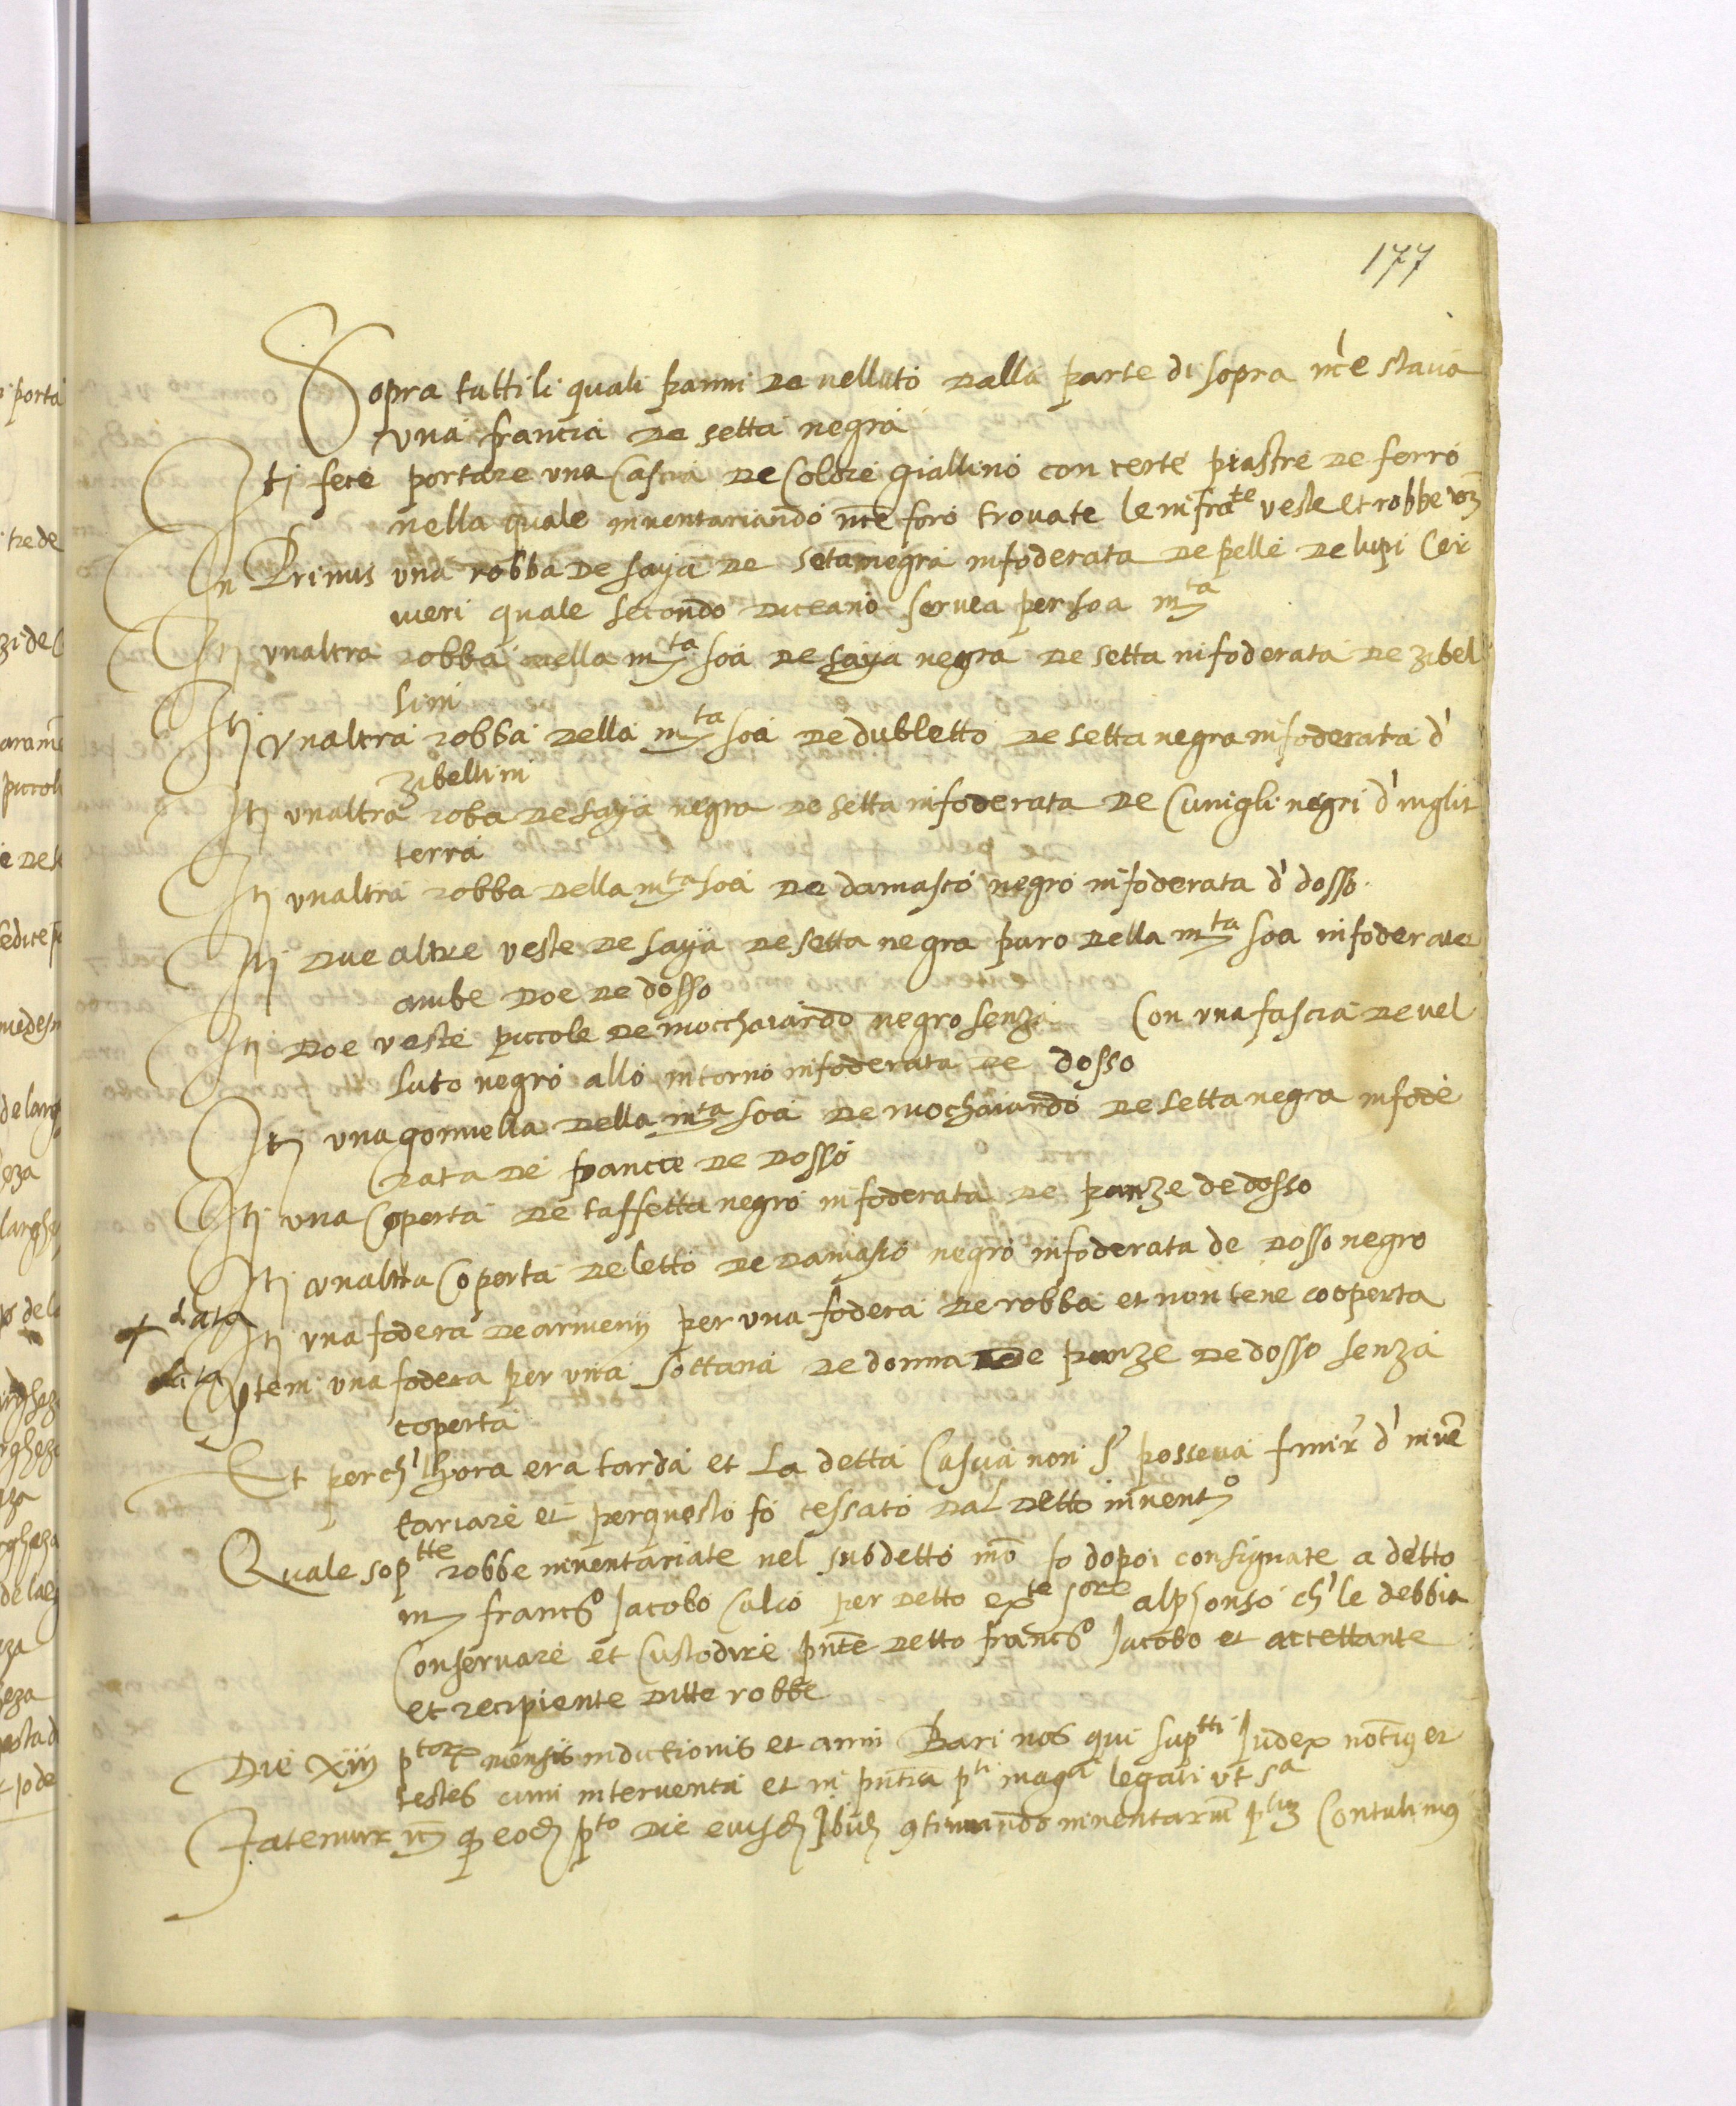 177
Sopra tutti li quali panni de velluto dalla parte di sopra nce stava
una francia de setta negra
Itj fece portare una Cascia de Colore giallino con certe piastre de ferro
nella quale inventariando nce foro trovate le infratte veste et robbe vz
In Primis una robba de saya de seta negra infoderata de pelle de lupi Cer
vieri quale secondo diceano servea per soa mta
Itj unaltra robba della mta soa de saya negra de setta infoderata de zibel
lini
Itj unaltra robba della mta soa de dubletto de setta negra infoderata d'
zibellini
Itj unaltra roba de saya negra de setta infoderata de Cunigli negri d'inglit
terra
Itj unaltra robba della mta soa de damasco negro infoderata d' dosso
Itj due altre veste de saya de setta negra puro della mta soa infoderate
ambe doe de dosso
Itj doe veste piccole de mocchaiardo negro senza Con una fascia de vel
luto negro allo intorno infoderata de dosso
Itj una gonnella della mta soa de mochaiardo de setta negra infode
rata de pancie de dosso
Itj una Coperta de taffetta negro infoderata de panze de dosso
Itj unaltra Coperta de letto de damasco negro infoderata de dosso negro
+ data Itj una fodera de armenij per una fodera de robba et non tene cooperta
data Item una fodera per una sottana de donna de panze de dosso senza
coperta
Et perch' lhora era tarda et La detta Cascia non se posseva finir d' inven
tariare et per questo fo cessato dal detto invento
Quale soptte robbe inventariate nel subdetto mo fo dopoi consignate a detto
m francco Jacobo Calco per detto exte sore alphonso ch' le debbia
Conservare et Custodire pnte detto francco Jacobo et accettante
et recipiente ditte robbe
Die xiij ptor mensis indictionis et anni Bari nos qui suptti Judex notus et
testes cum interventa et in pntia pti magci legati ut sa
Fatemur q eod pto die eiusd continuando inventarium Contulimus